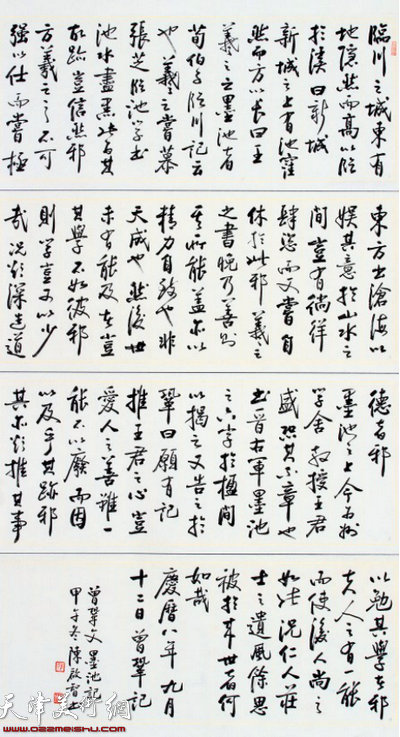 臨川之城東有
地隱然而高以臨
於溪曰新城
新城之上有池窪
然而方以長曰王
羲之之墨池者
荀伯子臨川記云
也羲之嘗慕
張芝臨池學書
池水盡黑此爲其
故跡豈信然邪
方羲之之不可
強以仕而嘗極
東方出滄海以
娛其意於山水之
間豈有徜徉
肆恣而又嘗自
休於此邪羲之
之書晚乃善則
其所能蓋亦以
精力自致也非
天成也然後世
未有能及者豈
其學不如彼邪
則學豈可以少
哉況欲深造道
德者邪
墨池之上今爲州
學舍教授王君
盛恐其不章也
書晉右軍墨池
之六字於楹間
以揭之又告之於
鞏曰願有記
推王君之心豈
愛人之善雖一
能不以廢而因
以及乎其跡邪
其亦欲推其事
以勉其學者邪
夫人之有一能
而使後人尚之
如此況仁人莊
士之遺風餘思
被於來世者何
如哉
慶曆八年九月
十二日曾鞏記
曾鞏文墨池記
甲午冬陳啟智書
天津美術網
www.022meishu.com